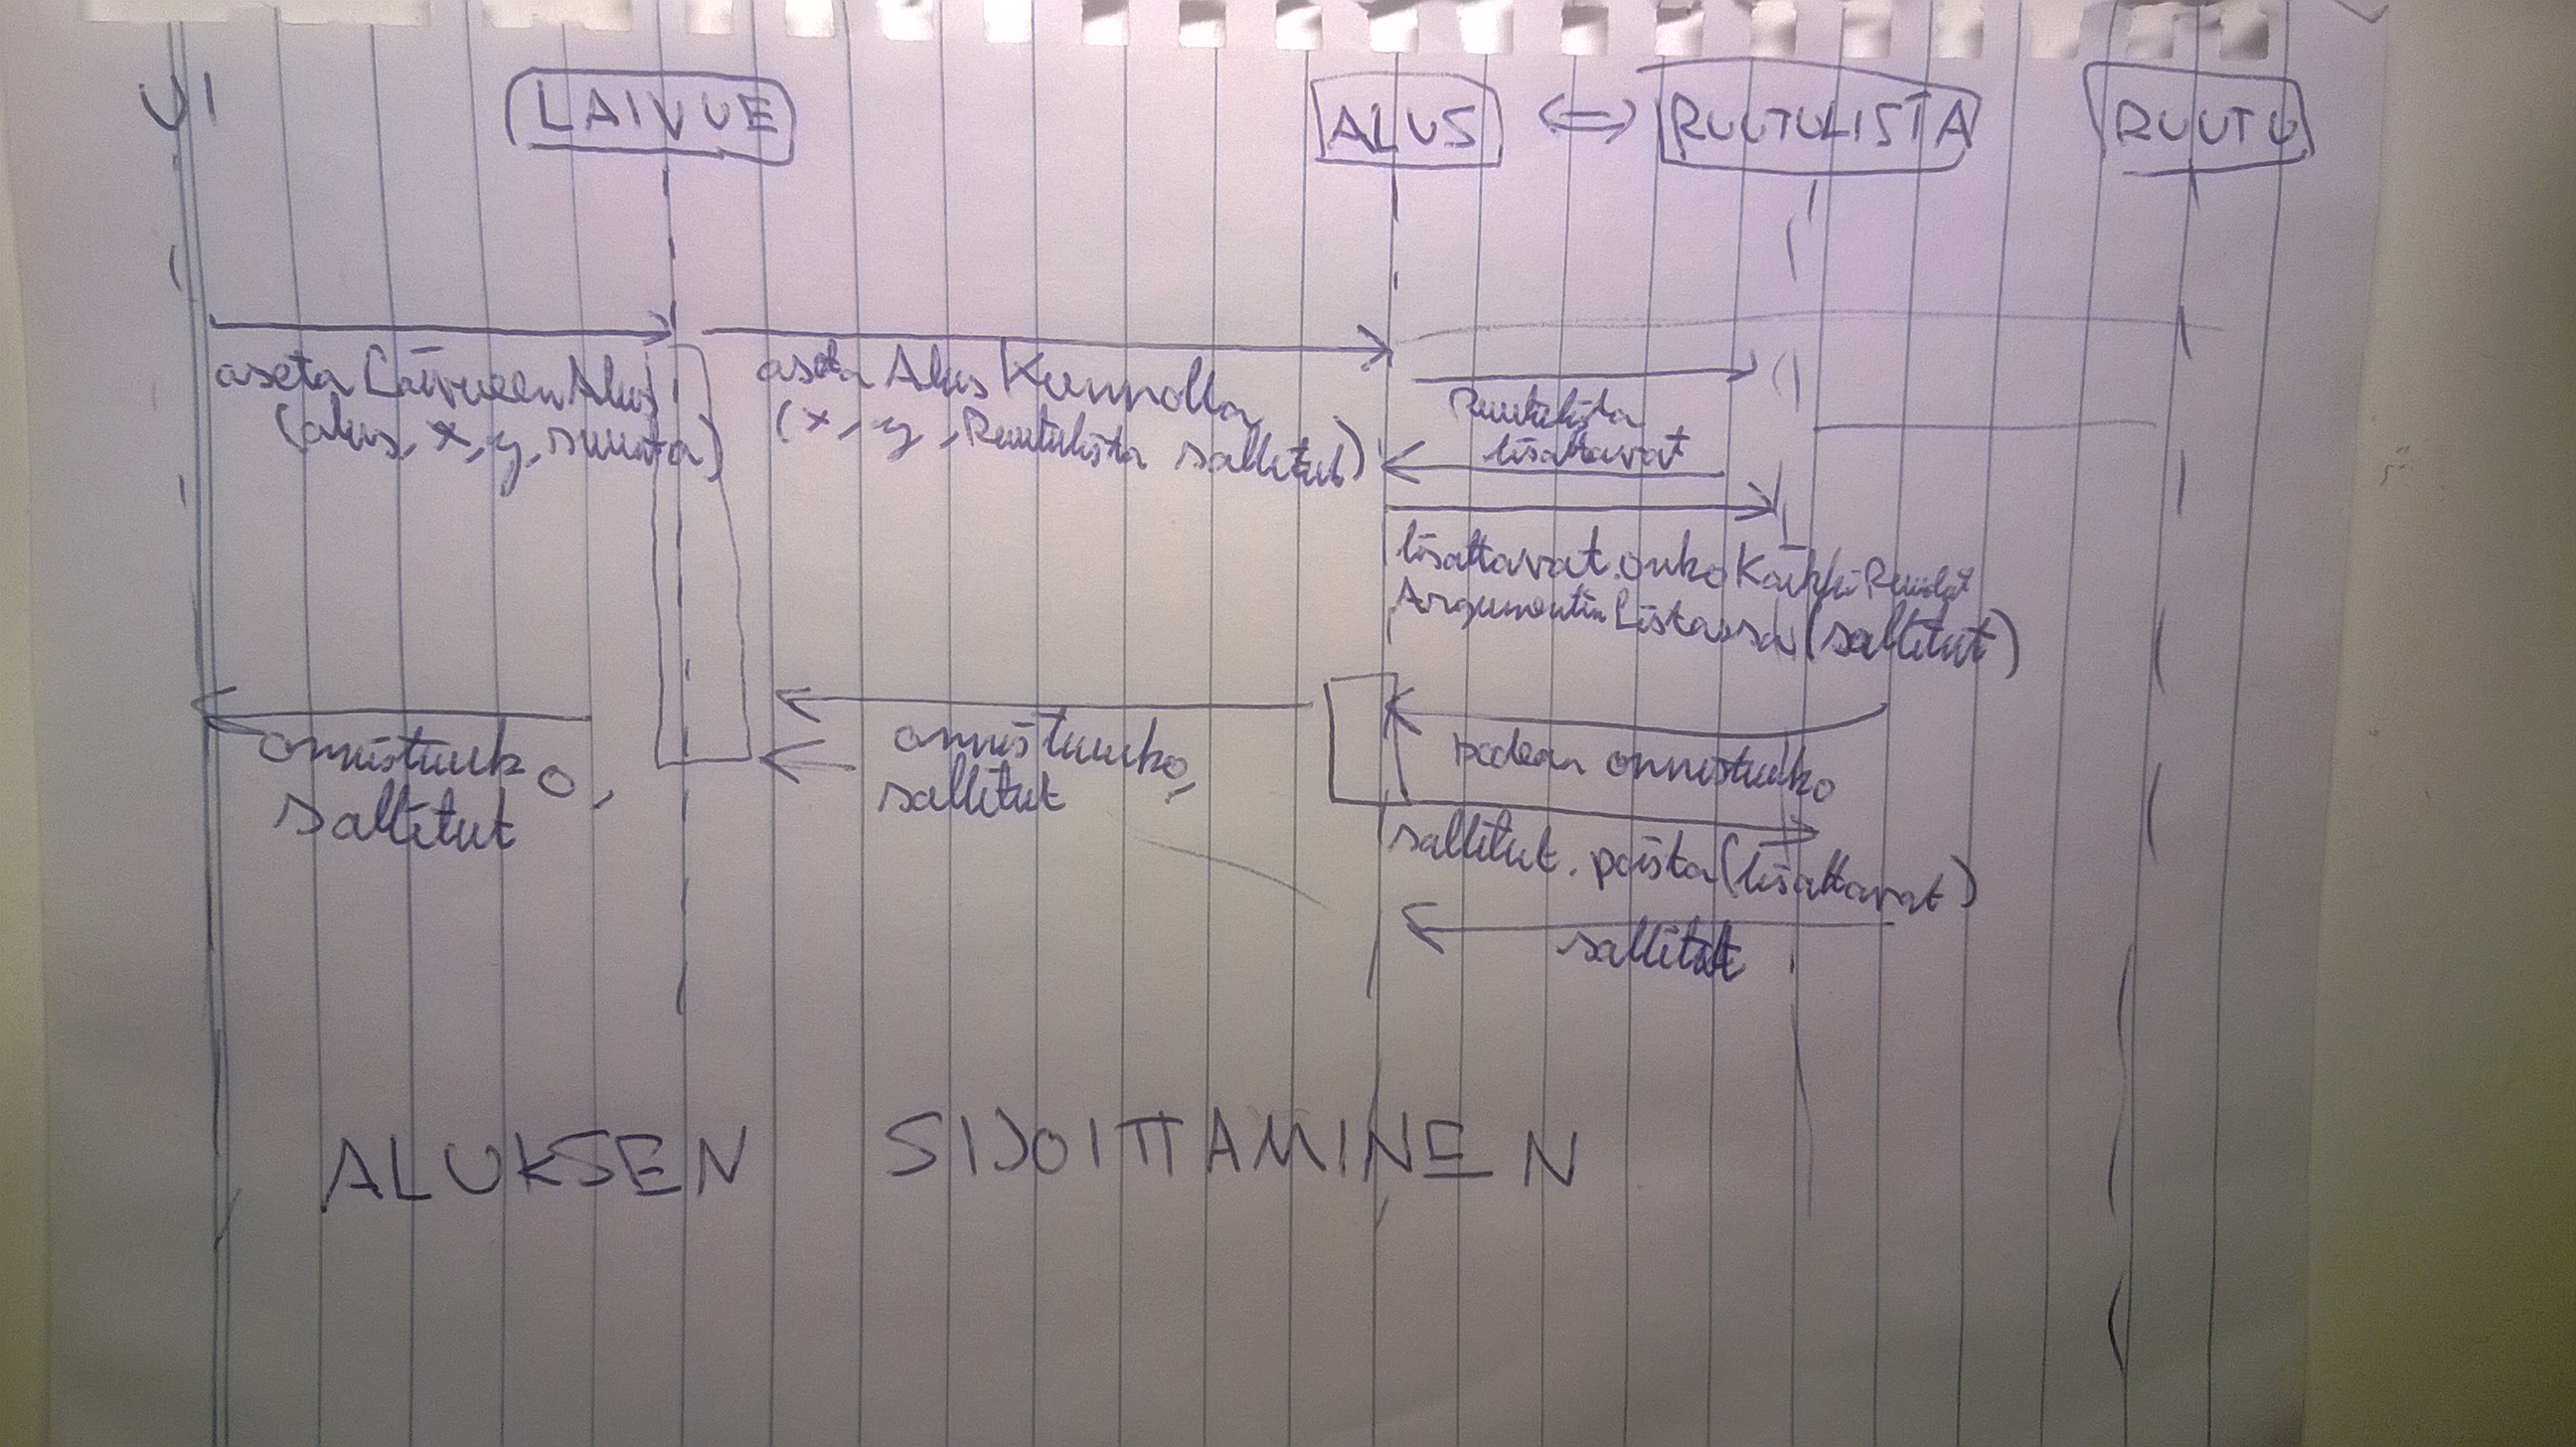 UI
LAIVUE
ALUS <=> RUUTULISTA
RUUTU
aseta Laivueen Alus
(alus, x, y, suunta)
aseta Alus Kunnolla
(x, y, Ruutulista sallitut)
Ruutulista
lisattavat
lisattavat.onko Kaikki Ruudut
Argumentin Listassa (sallitut)
onnistuuko,
sallitut
onnistuuko,
sallitut
boolean onnistuuko
sallitut.poista(lisattavat)
sallitut
ALUKSEN SIJOITTAMINEN